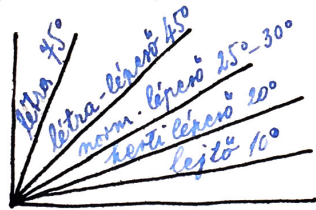 létra 75°
létra-lépcső 45°
norm. lépcső 25°-30°
kerti lépcső 20°
lejtő 10°